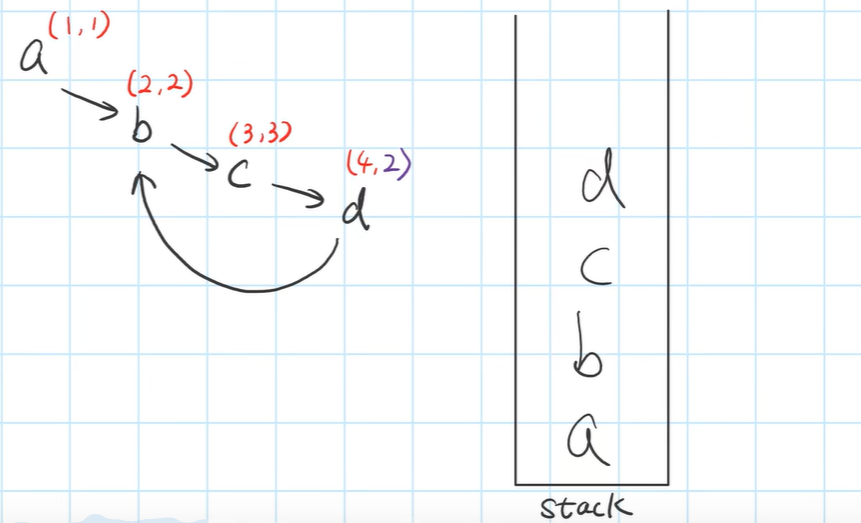 a (1,1)
b (2,2)
c (3,3)
d (4,2)
d
c
b
a
stack